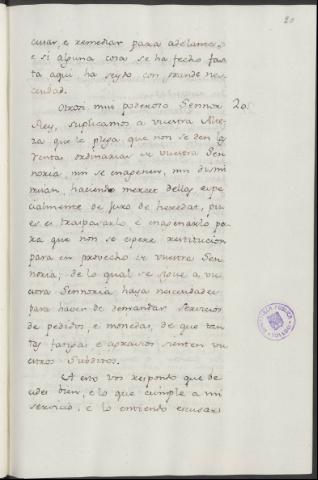 20
cusar, e remediar para adelante,
e si alguna cosa se ha fecho fas
ta aqui ha seydo con grande nes
cesidad.
Otrosi mui poderoso Sennor 20.
Rey, suplicamos a vuestra Alte
za que le plega que non se den las
rentas ordinarias de vuestra Sen
noria, nin se enagenen, nin dismi
nuian, haciendo merzet dellas espe
cialmente de juro de heredat, pu
es es traspasarlo, e enagenarlo pa
ra que non se espere restitucion
para en provecho de vuestra Sen
noria; de lo qual se sigue a vu
estra Sennoria haya nescesidades
para haver de demandar servicios
de pedidos, e monedas, de que ren
tas fatigas e agravios sienten vu
estros subditos.
A esto vos respondo que de
cides bien, e lo que cumple a mi
servicio, e lo entiendo escusar
BIBLIOTECA PUBLICA
TOLEDO